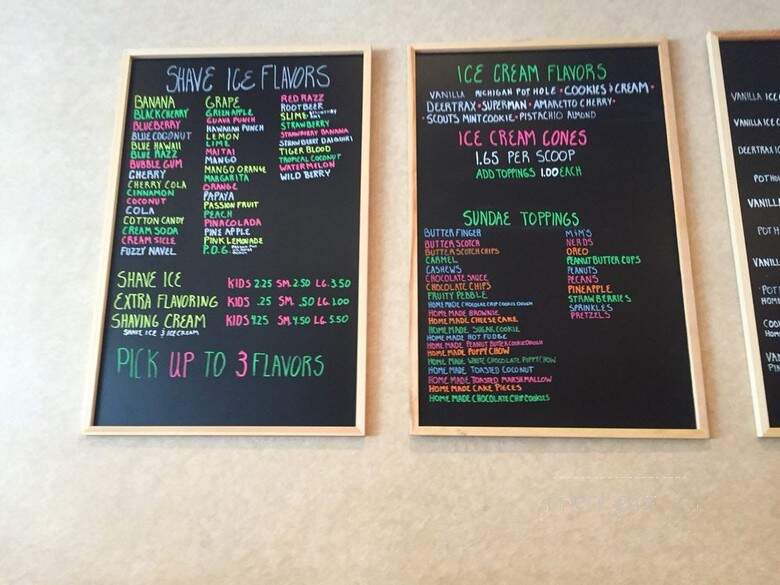 SHAVE ICE FLAVORS
BANANA
BLACK CHERRY
BLUEBERRY
BLUE COCONUT
BLUE HAWAII
BLUE RAZZ
BUBBLE GUM
CHERRY
CHERRY COLA
CINNAMON
COCONUT
COLA
COTTON CANDY
CREAM SODA
CREAM SICLE
FUZZY NAVEL
GRAPE
GREEN APPLE
GUAVA PUNCH
HAWAIIAN PUNCH
LEMON
LIME
MAI TAI
MANGO
MANGO ORANGE
MARGARITA
ORANGE
PAPAYA
PASSION FRUIT
PEACH
PINACOLADA
PINE APPLE
PINK LEMONADE
P.O.G.
RED RAZZ
ROOT BEER
SLIME
STRAWBERRY
STRAWBERRY BANANA
STRAWBERRY DAIQUIRI
TIGER BLOOD
TROPICAL COCONUT
WATERMELON
WILD BERRY
SHAVE ICE KIDS 2.25 SM. 2.50 LG. 3.50
EXTRA FLAVORING KIDS .25 SM .50 LG. 1.00
SHAVING CREAM KIDS 4.25 SM. 4.50 LG. 5.50
SHAVE ICE & ICE CREAM
PICK UP TO 3 FLAVORS
ICE CREAM FLAVORS
VANILLA MICHIGAN POT HOLE • COOKIES & CREAM •
DEERTRAX • SUPERMAN • AMARETTO CHERRY •
• SCOUTS MINT COOKIE • PISTACHIO ALMOND
ICE CREAM CONES
1.65 PER SCOOP
ADD TOPPINGS 1.00 EACH
SUNDAE TOPPINGS
BUTTER FINGER
BUTTER SCOTCH
BUTTER SCOTCH CHIPS
CARMEL
CASHEWS
CHOCOLATE SAUCE
CHOCOLATE CHIPS
FRUITY PEBBLE
HOME MADE CHOCOLATE CHIP COOKIE DOUGH
HOME MADE BROWNIE
HOME MADE CHEESE CAKE
HOME MADE SUGAR COOKIE
HOME MADE HOT FUDGE
HOME MADE PEANUT BUTTER COOKIE DOUGH
HOME MADE PUPPY CHOW
HOME MADE WHITE CHOCOLATE PUPPY CHOW
HOME MADE TOASTED COCONUT
HOME MADE TOASTED MARSHMALLOW
HOME MADE CAKE PIECES
HOME MADE CHOCOLATE CHIP COOKIES
M&M'S
NERDS
OREO
PEANUT BUTTER CUPS
PEANUTS
PECANS
PINEAPPLE
STRAWBERRIES
SPRINKLES
PRETZELS
VANILLA ICE
VANILLA ICE C
DEERTRAX IC
POTHO
VANILL
POT H
VANILL
POT
HOM
COO
HOM
VAN
PIN